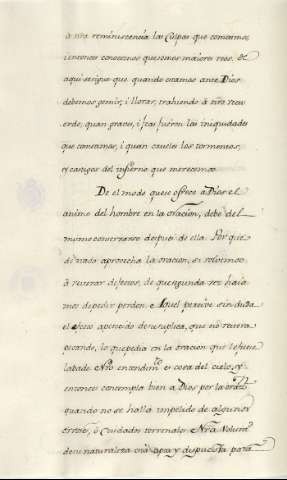 à nra reminiscencia las Culpas que cometimos
i entonces conocemos que somos maiores reos. De
aqui se sigue que quando estamos ante Dios
debemos gemir, i llorar, trahiendo à nro recu
erdo, quan graves, i feas fueron las iniquidades
que cometimos, i quan crueles los tormentos,
y castigos del infierno que merecemos.
De el modo que se ofrece à Dios el
animo del hombre en la oracion, debe del
mismo conservarse despues de ella. Porque
de nada aprovecha la oracion, si volvemos
à reiterar defectos, de que segunda vez haia
mos de pedir perdon. Aquel percive sin duda
el efecto apetecido de su suplica, que no revera
pecando, lo que pedia en la oracion que le fuese
Nro entendimto es cosa del cielo, y
entonces contempla bien à Dios por la oracn
quando no se halla impelido de algunos
errores, ò Cuidados terrenales. Nra Volunta
de su naturaleza está apta y dispuesta para